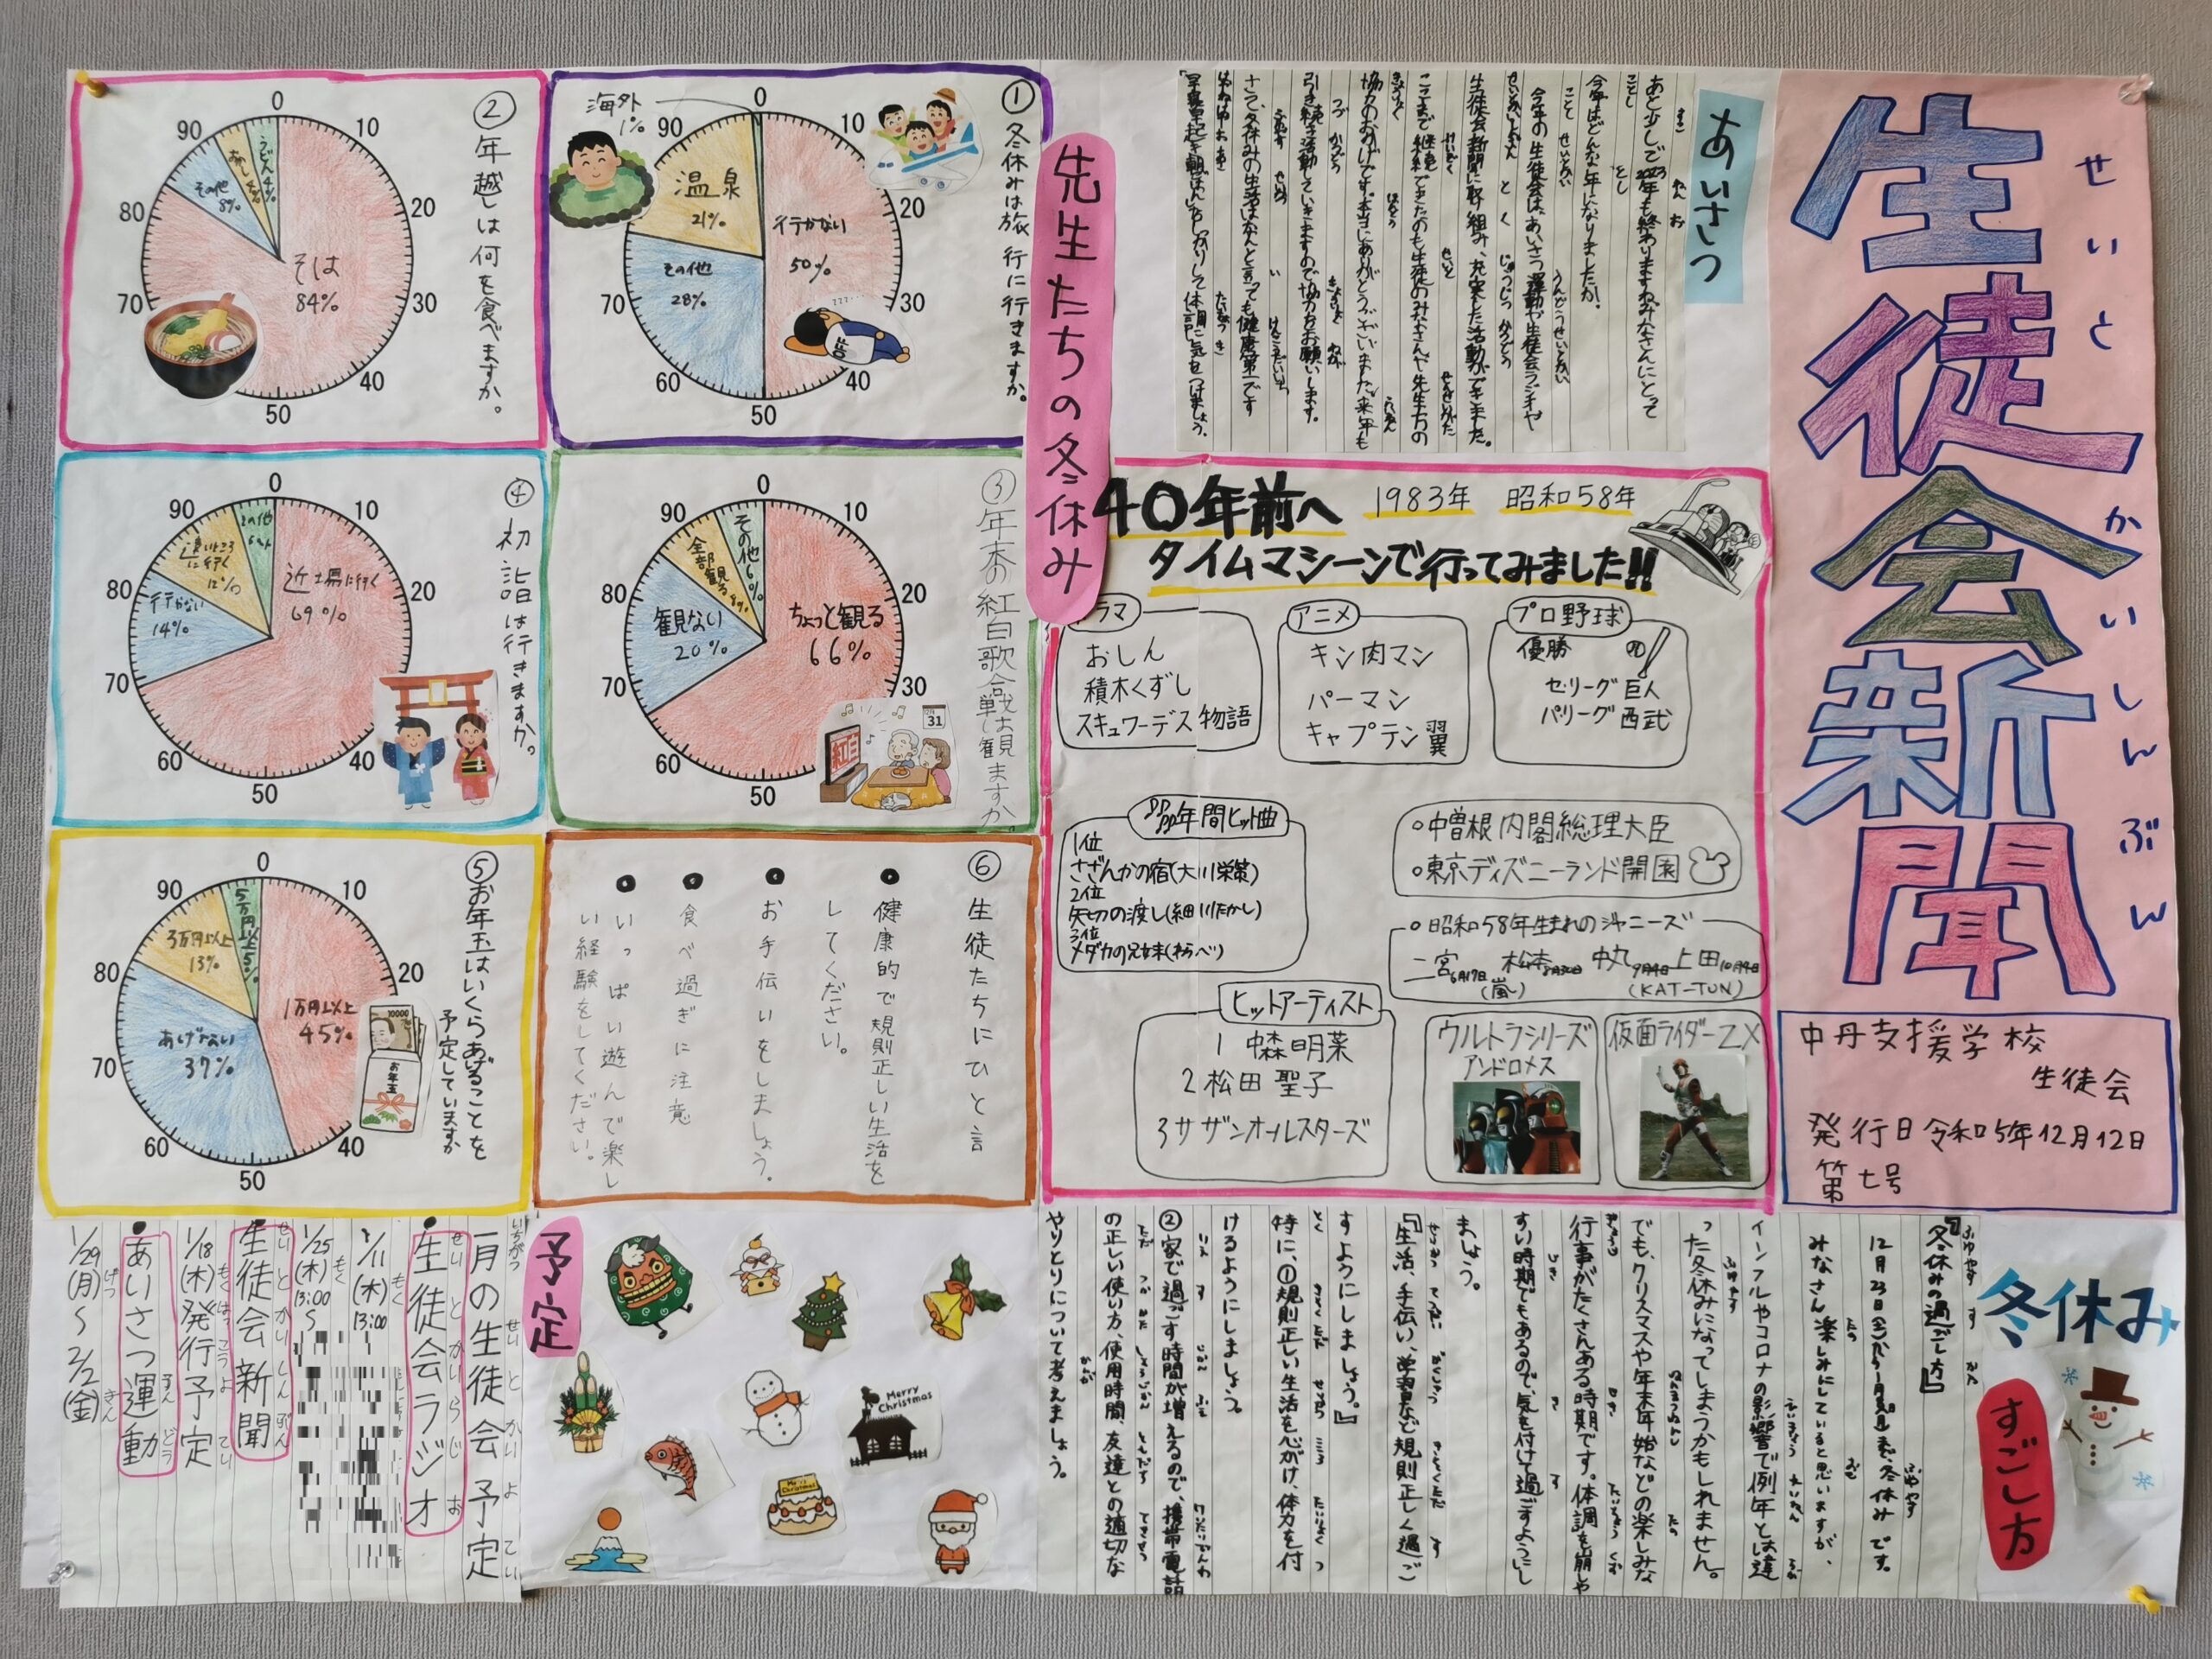 生徒会新聞
せいとかいしんぶん
中丹支援学校
生徒会
発行日令和5年12月12日
第七号
あいさつ
あと少しで2023年も終わりますね。みなさんにとって
今年はどんな年になりましたか。
今年の生徒会は、あいさつ運動や生徒会ラジオや
生徒会新聞に取り組み、充実した活動ができました。
ここまで継続できたのも生徒のみなさんや先生方の
協力のおかげです。本当にありがとうございました。来年も
引き続き活動していきますので協力をお願いします。
さて、冬休みの生活はなんと言っても健康第一です
「早寝早起き朝ごはん」をしっかりして体調に気をつけましょう。
40年前へ 1983年 昭和58年
タイムマシーンで行ってみました!!
プロ野球
優勝
セ・リーグ 巨人
パ・リーグ 西武
アニメ
キン肉マン
パーマン
キャプテン翼
ドラマ
おしん
積木くずし
スキュワーデス物語
年間ヒット曲
1位
さざんかの宿(大川栄策)
2位
矢切の渡し(細川たかし)
3位
メダカの兄妹(わらべ)
○中曽根内閣総理大臣
○東京ディズニーランド開園
○昭和58年生まれのジャニーズ
二宮6月17日 松本8月30日 中丸9月4日 上田10月4日
(嵐) (KAT-TUN)
ヒットアーティスト
1 中森明菜
2 松田聖子
3 サザンオールスターズ
ウルトラシリーズ
アンドロメス
仮面ライダーZX
先生たちの冬休み
①冬休みは旅行に行きますか。
0
10
20
30
40
50
60
70
80
90
行かない
50%
その他
28%
温泉
21%
海外
1%
②年越しは何を食べますか。
0
10
20
30
40
50
60
70
80
90
そば
84%
その他
8%
うどん4%
③年末の紅白歌合戦は観ますか。
0
10
20
30
50
60
70
80
90
ちょっと観る
66%
観ない
20%
全部観る8%
その他6%
紅白
31
④初詣は行きますか。
0
10
20
40
50
60
70
80
90
近場に行く
69%
行かない
14%
遠いところ
に行く
12%
その他
⑤お年玉はいくらあげることを
予定していますか
0
10
20
40
50
60
70
80
90
1万円以上
45%
あげない
37%
3万円以上
13%
5万円以上5%
10000
お年玉
⑥生徒たちにひと言
●健康的で規則正しい生活を
してください。
●お手伝いをしましょう。
●食べ過ぎに注意
●いっぱい遊んで楽し
い経験をしてください。
冬休み
すごし方
『冬休みの過ごし方』
みなさん楽しみにしていると思いますが、
インフルやコロナの影響で例年とは違
った冬休みになってしまうかもしれません。
でも、クリスマスや年末年始などの楽しみな
行事がたくさんある時期です。体調を崩しや
すい時期でもあるので、気を付けて過ごすようにし
ましょう。
『生活、手伝い、学習など規則正しく過ご
すようにしましょう。』
特に、①規則正しい生活を心がけ、体力を付
けるようにしましょう。
②家で過ごす時間が増えるので、携帯電話
の正しい使い方、使用時間、友達との適切な
やりとりについて考えましょう。
予定
Merry
Christmas
Merry
Christmas
一月の生徒会予定
●生徒会ラジオ
1/11(木)13:00
1/25(木)13:00〜
●生徒会新聞
1/18(木)発行予定
●あいさつ運動
1/29(月)〜2/2(金)